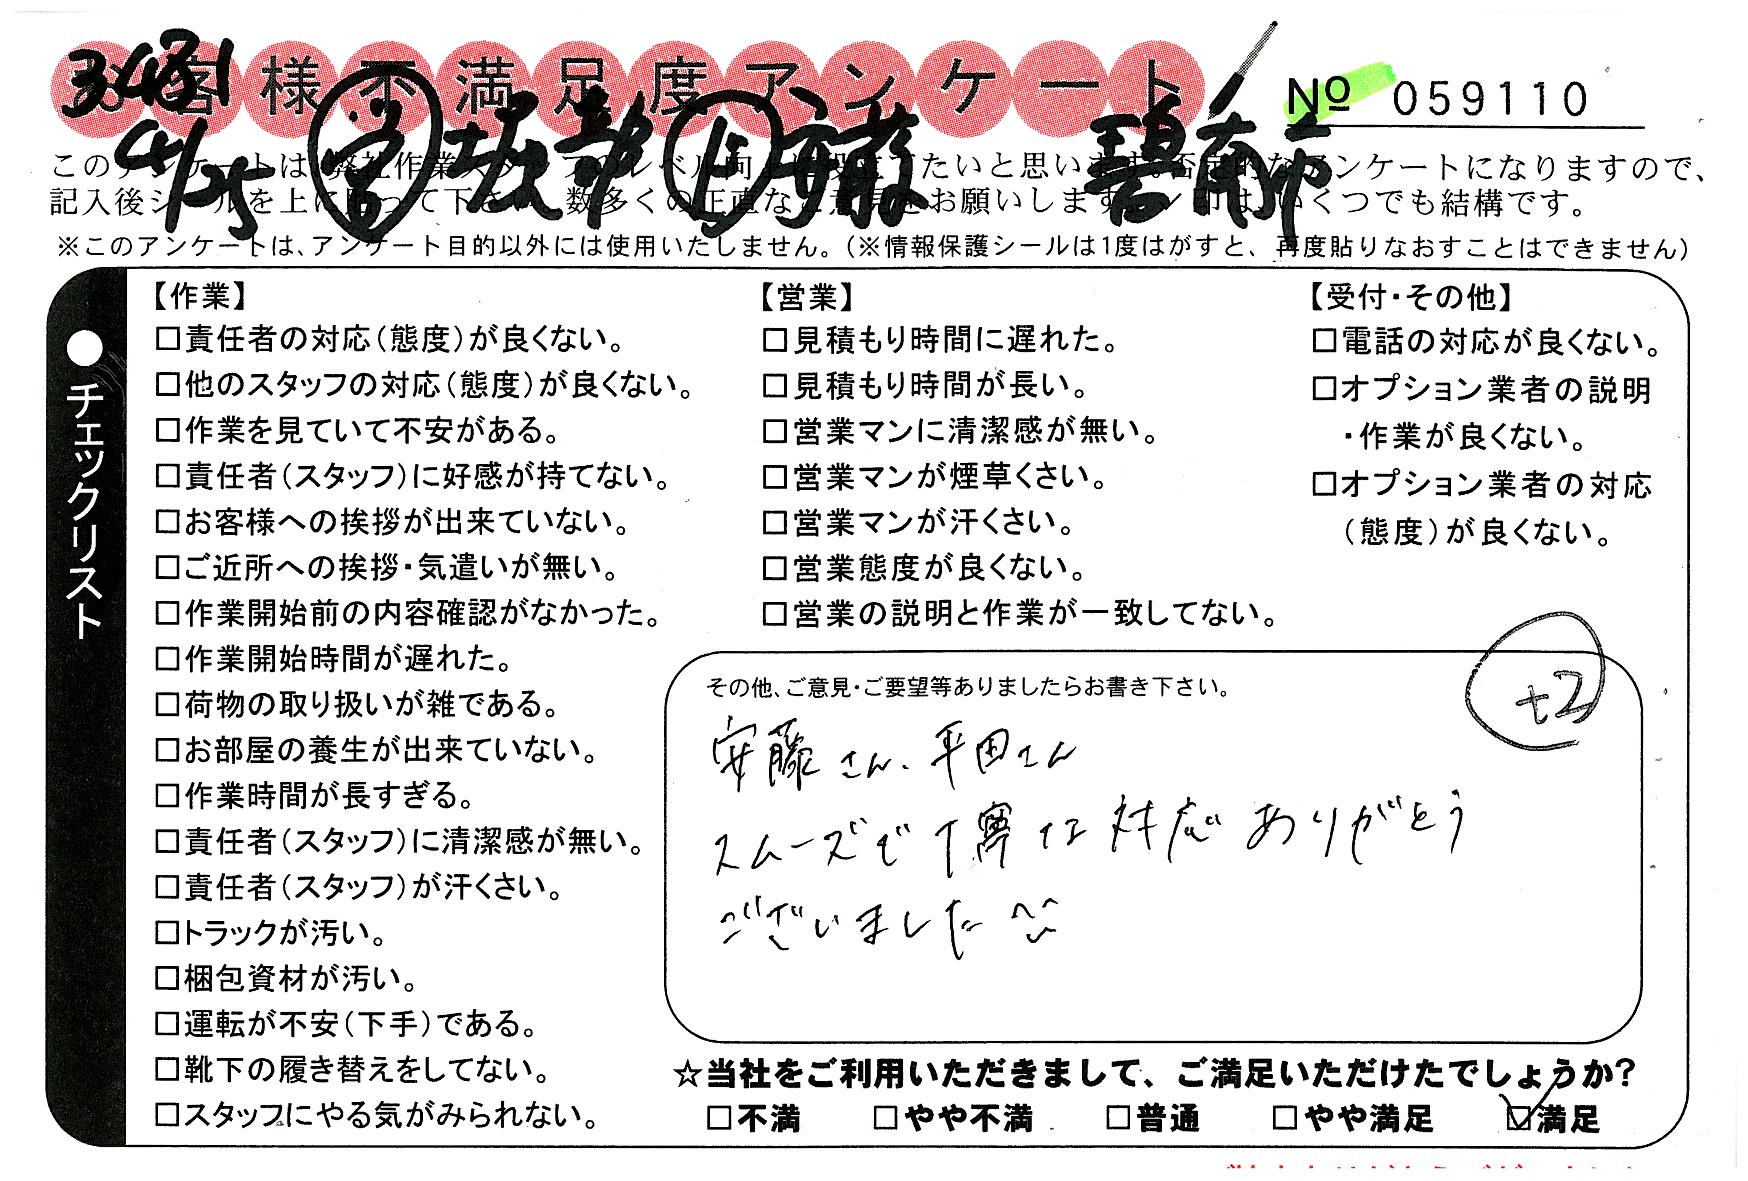 お客様不満足度アンケート
No 059110
3/31
4/25 営 阪部 作 安藤 碧南市
このアンケートは、弊社作業スタッフのレベル向上に役立てたいと思います。否定的なアンケートになりますので、
記入後シールを上に貼って下さい。数多くの正直なご意見をお願いします。レ印は、いくつでも結構です。
※このアンケートは、アンケート目的以外には使用いたしません。(※情報保護シールは1度はがすと、再度貼りなおすことはできません)
●チェックリスト
【作業】
□責任者の対応(態度)が良くない。
□他のスタッフの対応(態度)が良くない。
□作業を見ていて不安がある。
□責任者(スタッフ)に好感が持てない。
□お客様への挨拶が出来ていない。
□ご近所への挨拶・気遣いが無い。
□作業開始前の内容確認がなかった。
□作業開始時間が遅れた。
□荷物の取り扱いが雑である。
□お部屋の養生が出来ていない。
□作業時間が長すぎる。
□責任者(スタッフ)に清潔感が無い。
□責任者(スタッフ)が汗くさい。
□トラックが汚い。
□梱包資材が汚い。
□運転が不安(下手)である。
□靴下の履き替えをしてない。
□スタッフにやる気がみられない。
【営業】
□見積もり時間に遅れた。
□見積もり時間が長い。
□営業マンに清潔感が無い。
□営業マンが煙草くさい。
□営業マンが汗くさい。
□営業態度が良くない。
□営業の説明と作業が一致してない。
【受付・その他】
□電話の対応が良くない。
□オプション業者の説明
・作業が良くない。
□オプション業者の対応
(態度)が良くない。
+2
その他、ご意見・ご要望等ありましたらお書き下さい。
安藤さん、平田さん
スムーズで丁寧な対応ありがとう
ございました^^
☆当社をご利用いただきまして、ご満足いただけたでしょうか?
□不満 □やや不満 □普通 □やや満足 ☑満足